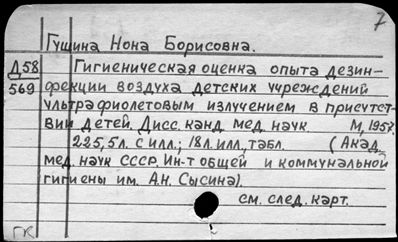 7
Гущина Нона Борисовна.
Д58 Гигиеническая оценка опыта дезин-
569 фекции воздуха детских учреждений
ультрафиолетовым излучением в присутст-
вии детей. Дисс. канд. мед. наук. М, 195
225, 5л. с илл.; 18л. илл, табл. (Акад.
мед. наук СССР. Ин-т общей и коммунальной
гигиены им. А.Н. Сысина).
см. след. карт.